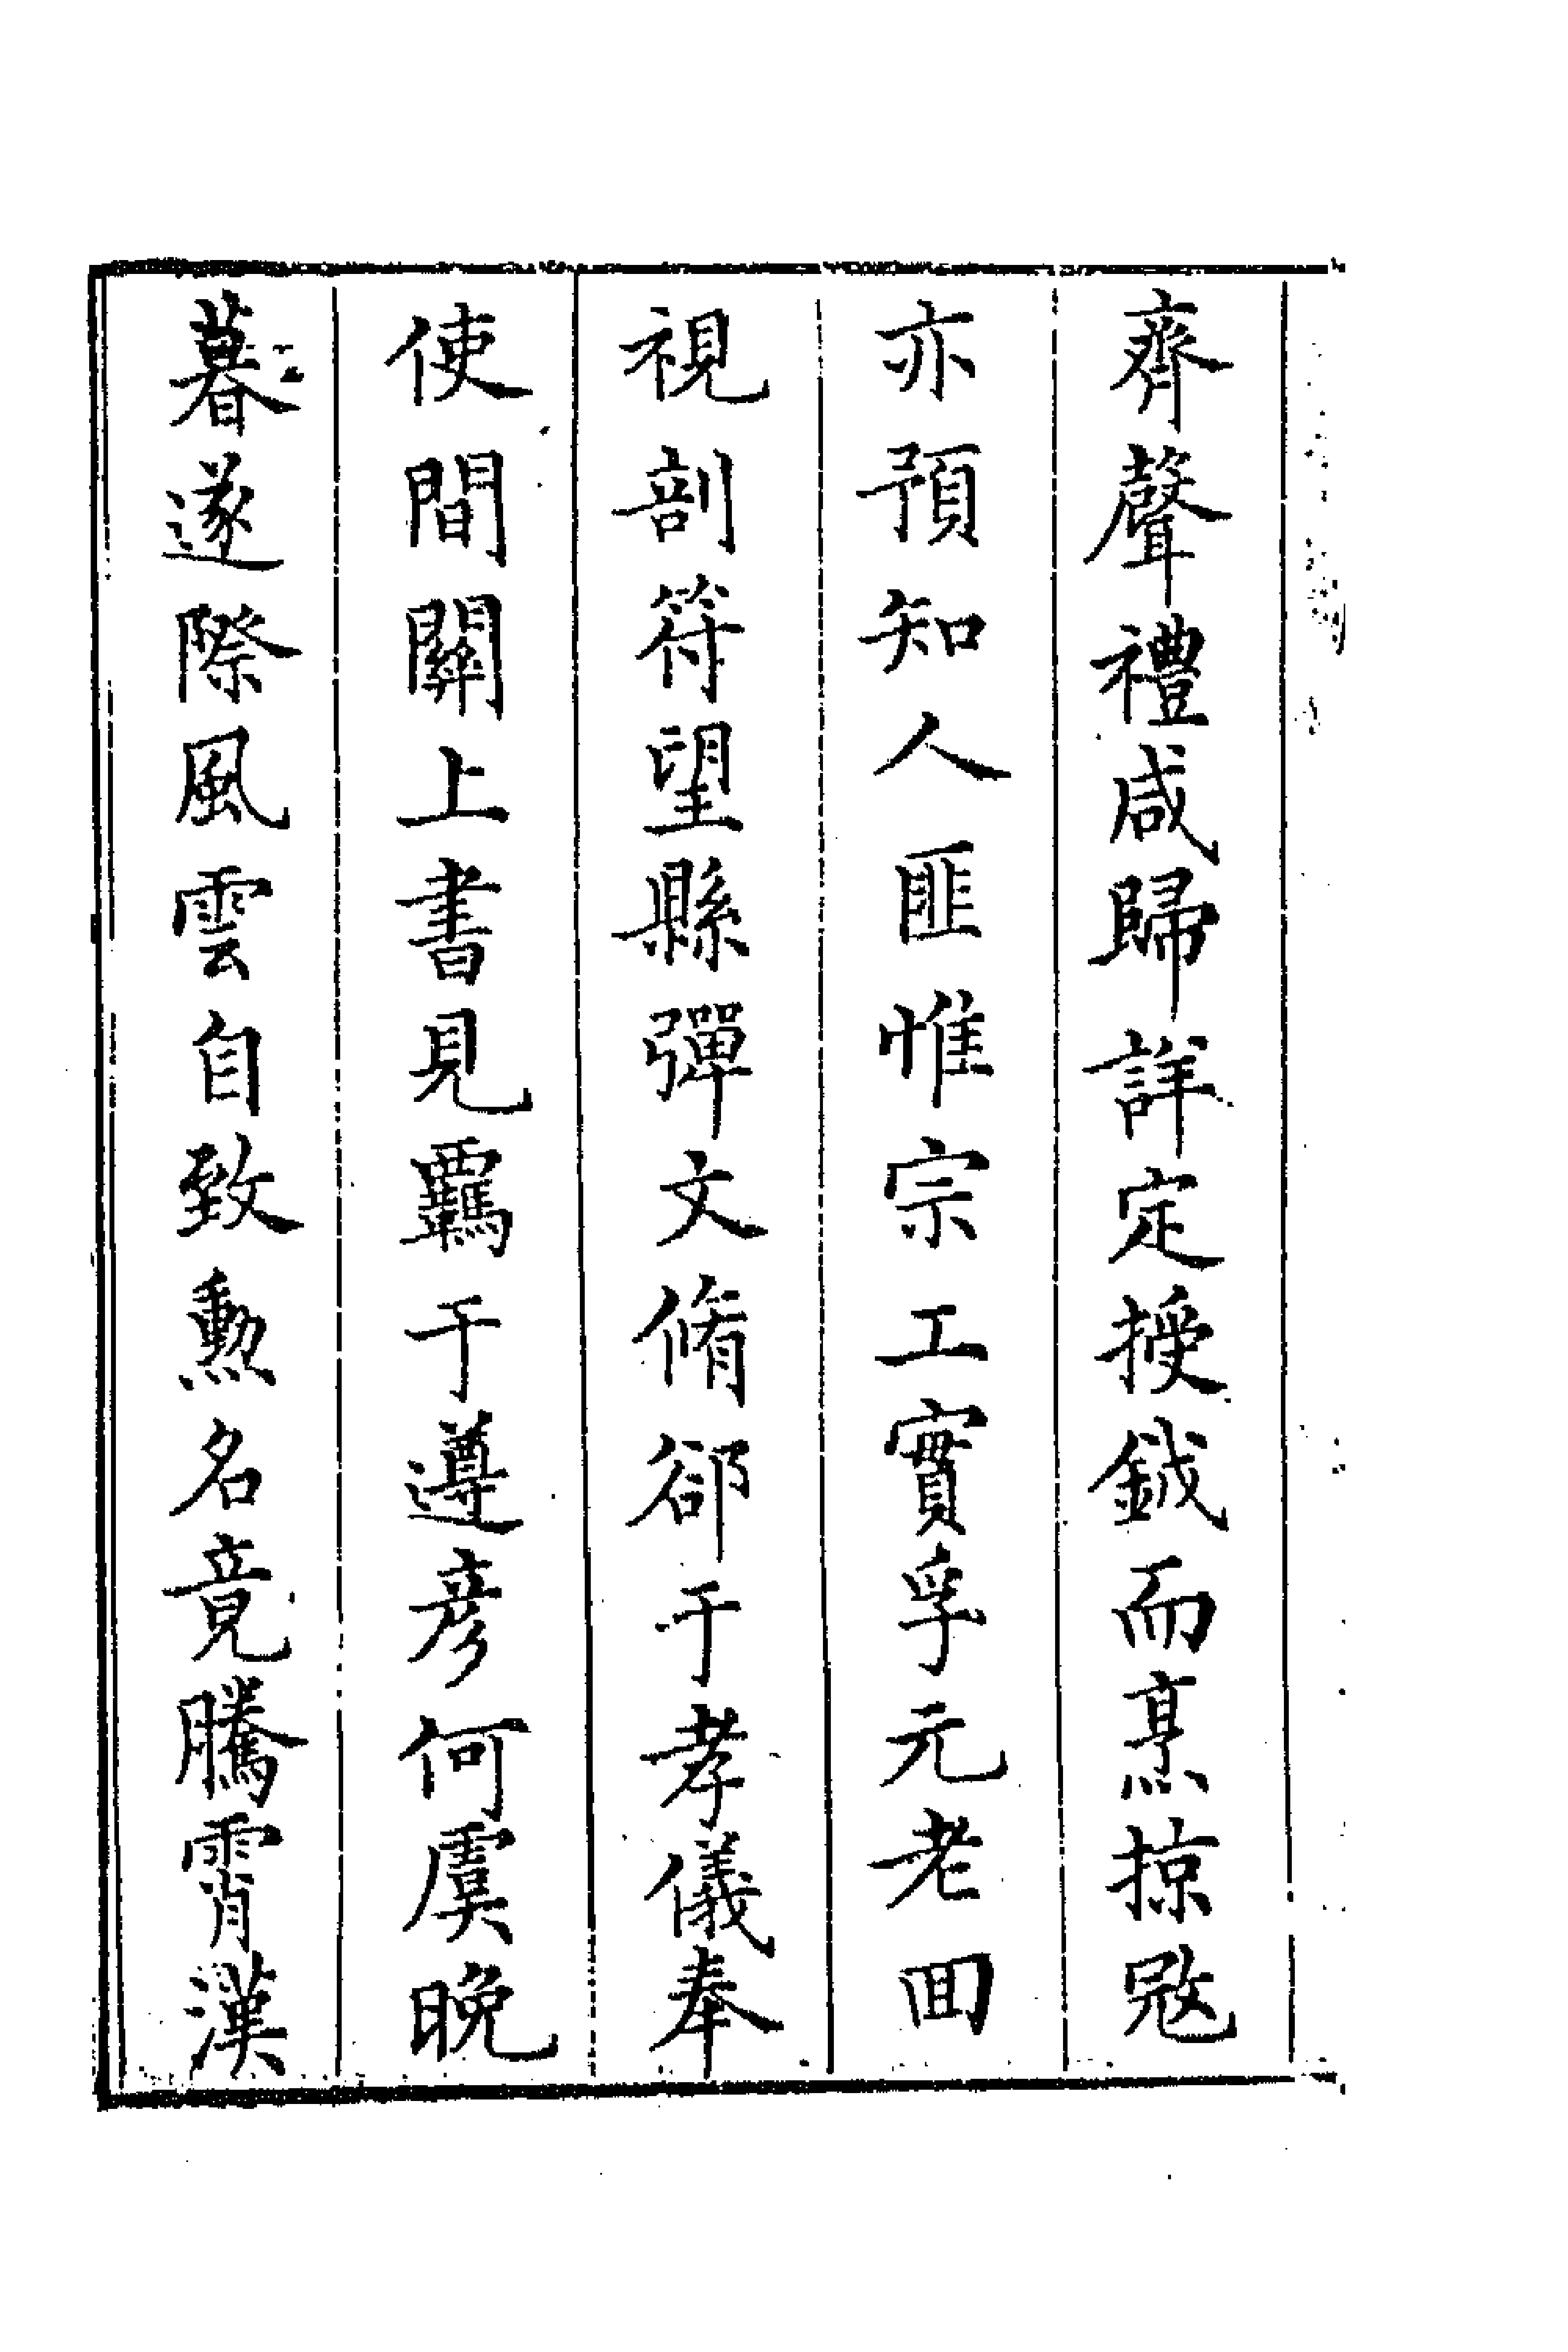 齊聲禮咸歸詳定授鉞而烹掠寇
亦預知人匪惟宗工實孚元老回
視剖符望縣彈文脩郤于孝儀奉
使間關上書見羈于遵彥何虞晚
暮遂際風雲自致勲名竟騰霄漢